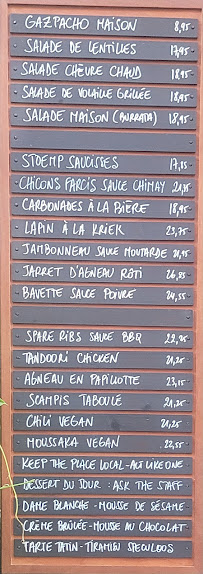 GAZPACHO MAISON 8,95-
SALADE DE LENTILLES 17,95-
SALADE CHÈVRE CHAUD 18,95-
SALADE DE VOLAILE GRILLÉE 18,95-
SALADE MAISON (BURRATA) 18,95-
STOEMP SAUCISSES 17,55
CHICONS FARCIS SAUCE CHIMAY 21,75
CARBONADES À LA BIÈRE 18,95-
LAPIN À LA KRIEK 23,75
JAMBONNEAU SAUCE MOUTARDE 21,95
JARRET D'AGNEAU RÔTI 26,95
BAVETTE SAUCE POIVRE 24,55
SPARE RIBS SAUCE BBQ 22,95
TANDOORI CHICKEN 21,25
AGNEAU EN PAPILLOTTE 23,15
SCAMPIS TABOULÉ 21,25
CHILI VEGAN 21,25
MOUSSAKA VEGAN 22,55
KEEP THE PLACE LOCAL-ACT LIKE ONE
DESSERT DU JOUR : ASK THE STAFF
DAME BLANCHE - MOUSSE DE SÉSAME
CRÈME BRÛLÉE-MOUSSE AU CHOCOLAT
TARTE TATIN - TIRAMISU SPECULOOS